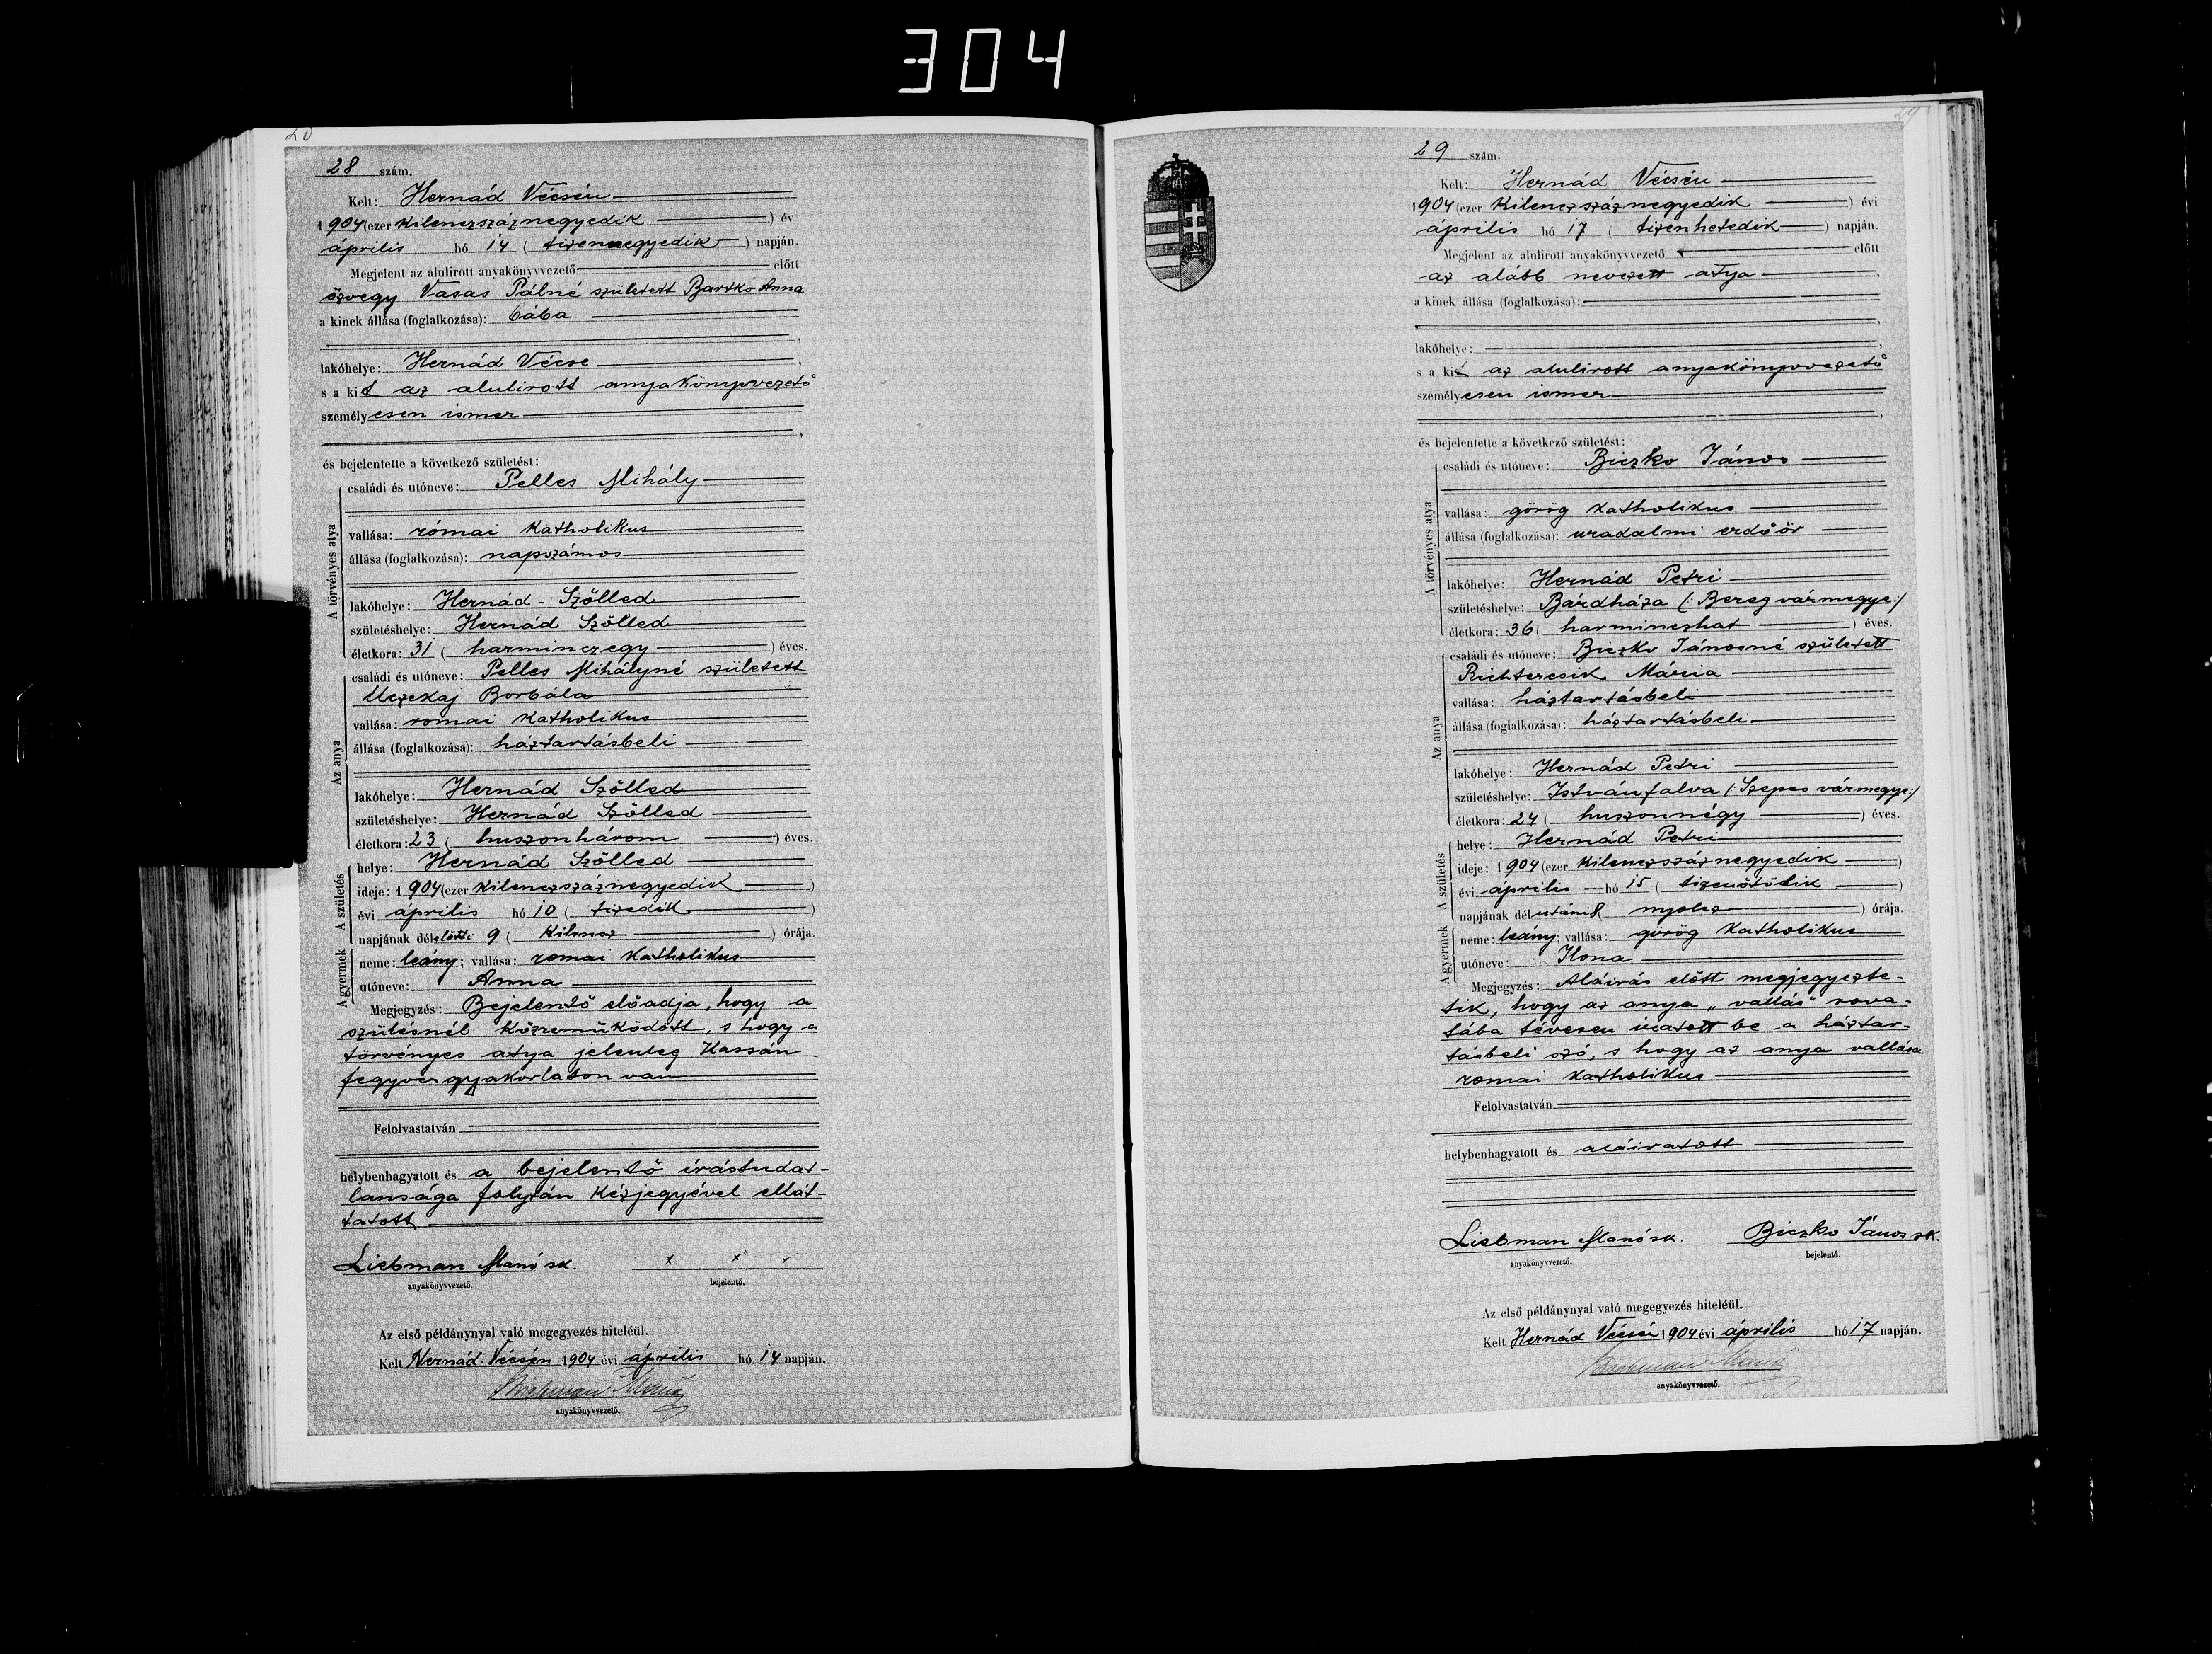 304
28 szám.
Kelt: Hernád Vécsén
1904 (ezer kilenczszáznegyedik ) év
április hó 14 ( tizennegyedik ) napján.
Megjelent az alulirott anyakönyvvezető előtt
özvegy Vasas Pálné született Bartko Anna
a kinek állása (foglalkozása): bába
,
lakóhelye: Hernád Vécse ,
s a kit az alulirott anyakönyvvezető
személyesen ismer
,
és bejelentette a következő születést:
A törvényes atya
családi és utóneve: Pelles Mihály
vallása: római katholikus
állása (foglalkozása): napszámos
lakóhelye: Hernád-Szölled
születéshelye: Hernád Szölled
életkora: 31 ( harminczegy ) éves.
Az anya
családi és utóneve: Pelles Mihályné született
Uczekaj Borbála
vallása: romai katholikus
állása (foglalkozása): háztartásbeli
lakóhelye: Hernád Szölled
születéshelye: Hernád Szölled
életkora: 23 ( huszonhárom ) éves.
A születés
helye: Hernád Szölled
ideje: 1904 (ezer kilenczszáznegyedik )
évi április hó 10 ( tizedik )
napjának délelőtti 9 ( kilencz ) órája.
A gyermek
neme: leány; vallása: romai katholikus
utóneve: Anna
Megjegyzés: Bejelentő előadja, hogy a
szülésnél közremüködött, s hogy a
törvényes atya jelenleg Kassán
fegyvergyakorlaton van
Felolvastatván
helybenhagyatott és a bejelentő irástudat-
lansága folytán kézjegyével ellát-
tatott
Liebman Manó sk. x x x
anyakönyvvezető. bejelentő.
Az első példánynyal való megegyezés hiteléül.
Kelt Hernád-Vécsén 1904 évi április hó 14 napján.
anyakönyvvezető.
29
29 szám.
Kelt: Hernád Vécsén
1904 (ezer kilenczszáznegyedik ) évi
április hó 17 ( tizenhetedik ) napján.
Megjelent az alulirott anyakönyvvezető előtt
az alább nevezett atya ,
a kinek állása (foglalkozása):
,
lakóhelye: ,
s a kit az alulirott anyakönyvvezető
személyesen ismer
,
és bejelentette a következő születést:
A törvényes atya
családi és utóneve: Biczko János
vallása: görög katholikus
állása (foglalkozása): uradalmi erdőőr
lakóhelye: Hernád Petri
születéshelye: Bárdháza (: Bereg vármegye :)
életkora: 36 ( harminczhat ) éves.
Az anya
családi és utóneve: Biczko Jánosné született
Richtercsik Mária
vallása: háztartásbeli
állása (foglalkozása): háztartásbeli
lakóhelye: Hernád Petri
születéshelye: Istvánfalva (: Szepes vármegye :)
életkora: 24 ( huszonnégy ) éves.
A születés
helye: Hernád Petri
ideje: 1904 (ezer kilenczszáznegyedik )
évi április hó 15 ( tizenötödik )
napjának délutáni 8 ( nyolcz ) órája.
A gyermek
neme: leány; vallása: görög katholikus
utóneve: Ilona
Megjegyzés: Aláirás előtt megjegyezte-
tik, hogy az anya „vallás" rova-
tába tévesen iratott be a háztar-
tásbeli szó, s hogy az anya vallása
romai katholikus
Felolvastatván
helybenhagyatott és aláiratott
Liebman Manó sk. Biczko János sk.
anyakönyvvezető. bejelentő.
Az első példánynyal való megegyezés hiteléül.
Kelt Hernád Vécsén 1904 évi április hó 17 napján.
anyakönyvvezető.